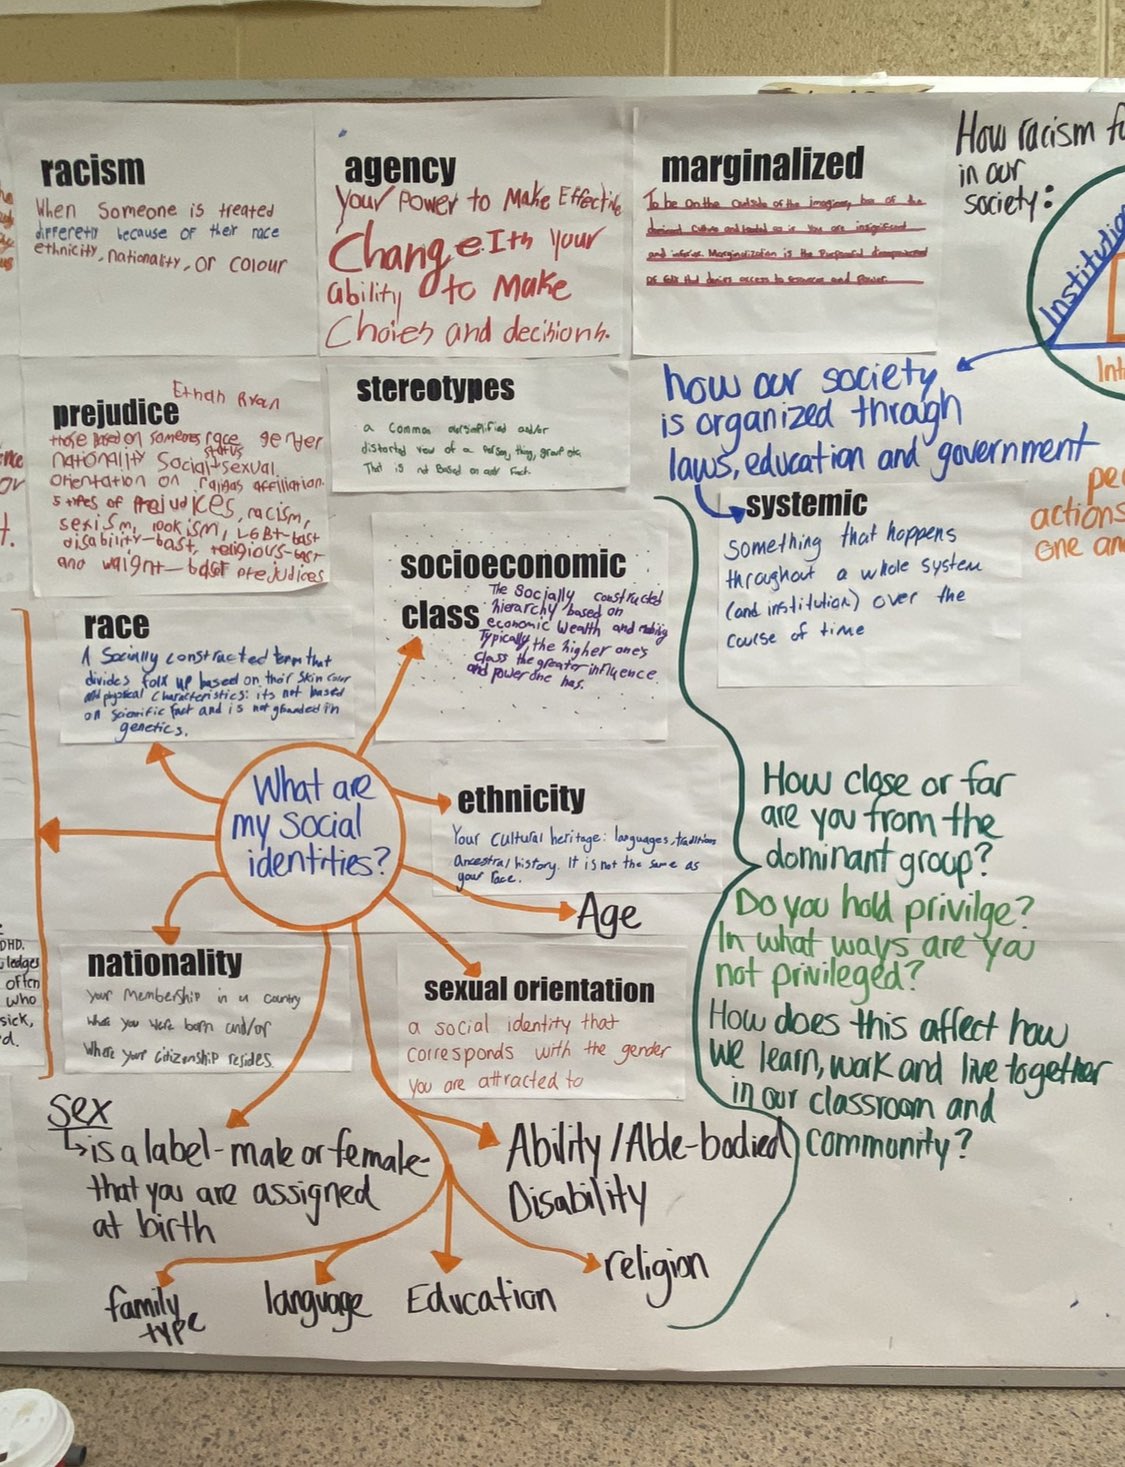 racism
When Someone is treated
differetly because of their race
ethnicity, nationality, or colour
agency
Your Power to Make Effective
Change. Its your
ability to Make
Choies and decisions.
marginalized
To be on the outside of the imaginary box of the
and inferior. Marginalization is the Purposeful
How racism
in our
society:
Institution
Int
how our society
is organized through
laws, education and government
systemic
Something that happens
throughout a whole system
(and institution) over the
course of time
pe
actions
one an
prejudice
Ethan Ryan
those Based on someones race gender
nationality Social status sexual
orientation on affiliation.
5 types of Prejudices, racism,
sexism, lookism, LGBT-bast
disability-bast, religious-bast
and waignt-bast prejudices
stereotypes
a Common oversimplified and/or
distorted view of a Person, thing, group etc.
That is not Based on any Fact.
socioeconomic
class
The Socially constructed
hierarchy based on
economic wealth and
Typically, the higher ones
class the greater influence
and power one has.
race
A Socially constructed term that
divides folx up based on their Skin colour
and physical characteristics: its not based
on Scientific fact and is not grounded in
genetics.
What are
my Social
identities?
ethnicity
Your cultural heritage: languages, traditions
ancestral history. It is not the same as
your race.
Age
nationality
Your Membership in a country
where you were born and/or
Where your citizenship resides
sexual orientation
a social identity that
corresponds with the gender
you are attracted to
How close or far
are you from the
dominant group?
Do you hold privilge?
In what ways are you
not privileged?
How does this affect how
we learn, work and live together
in our classroom and
community?
sex
is a label - male or female -
that you are assigned
at birth
Ability / Able-bodied
Disability
family
type
language
Education
religion
DHD.
often
who
sick,
d.